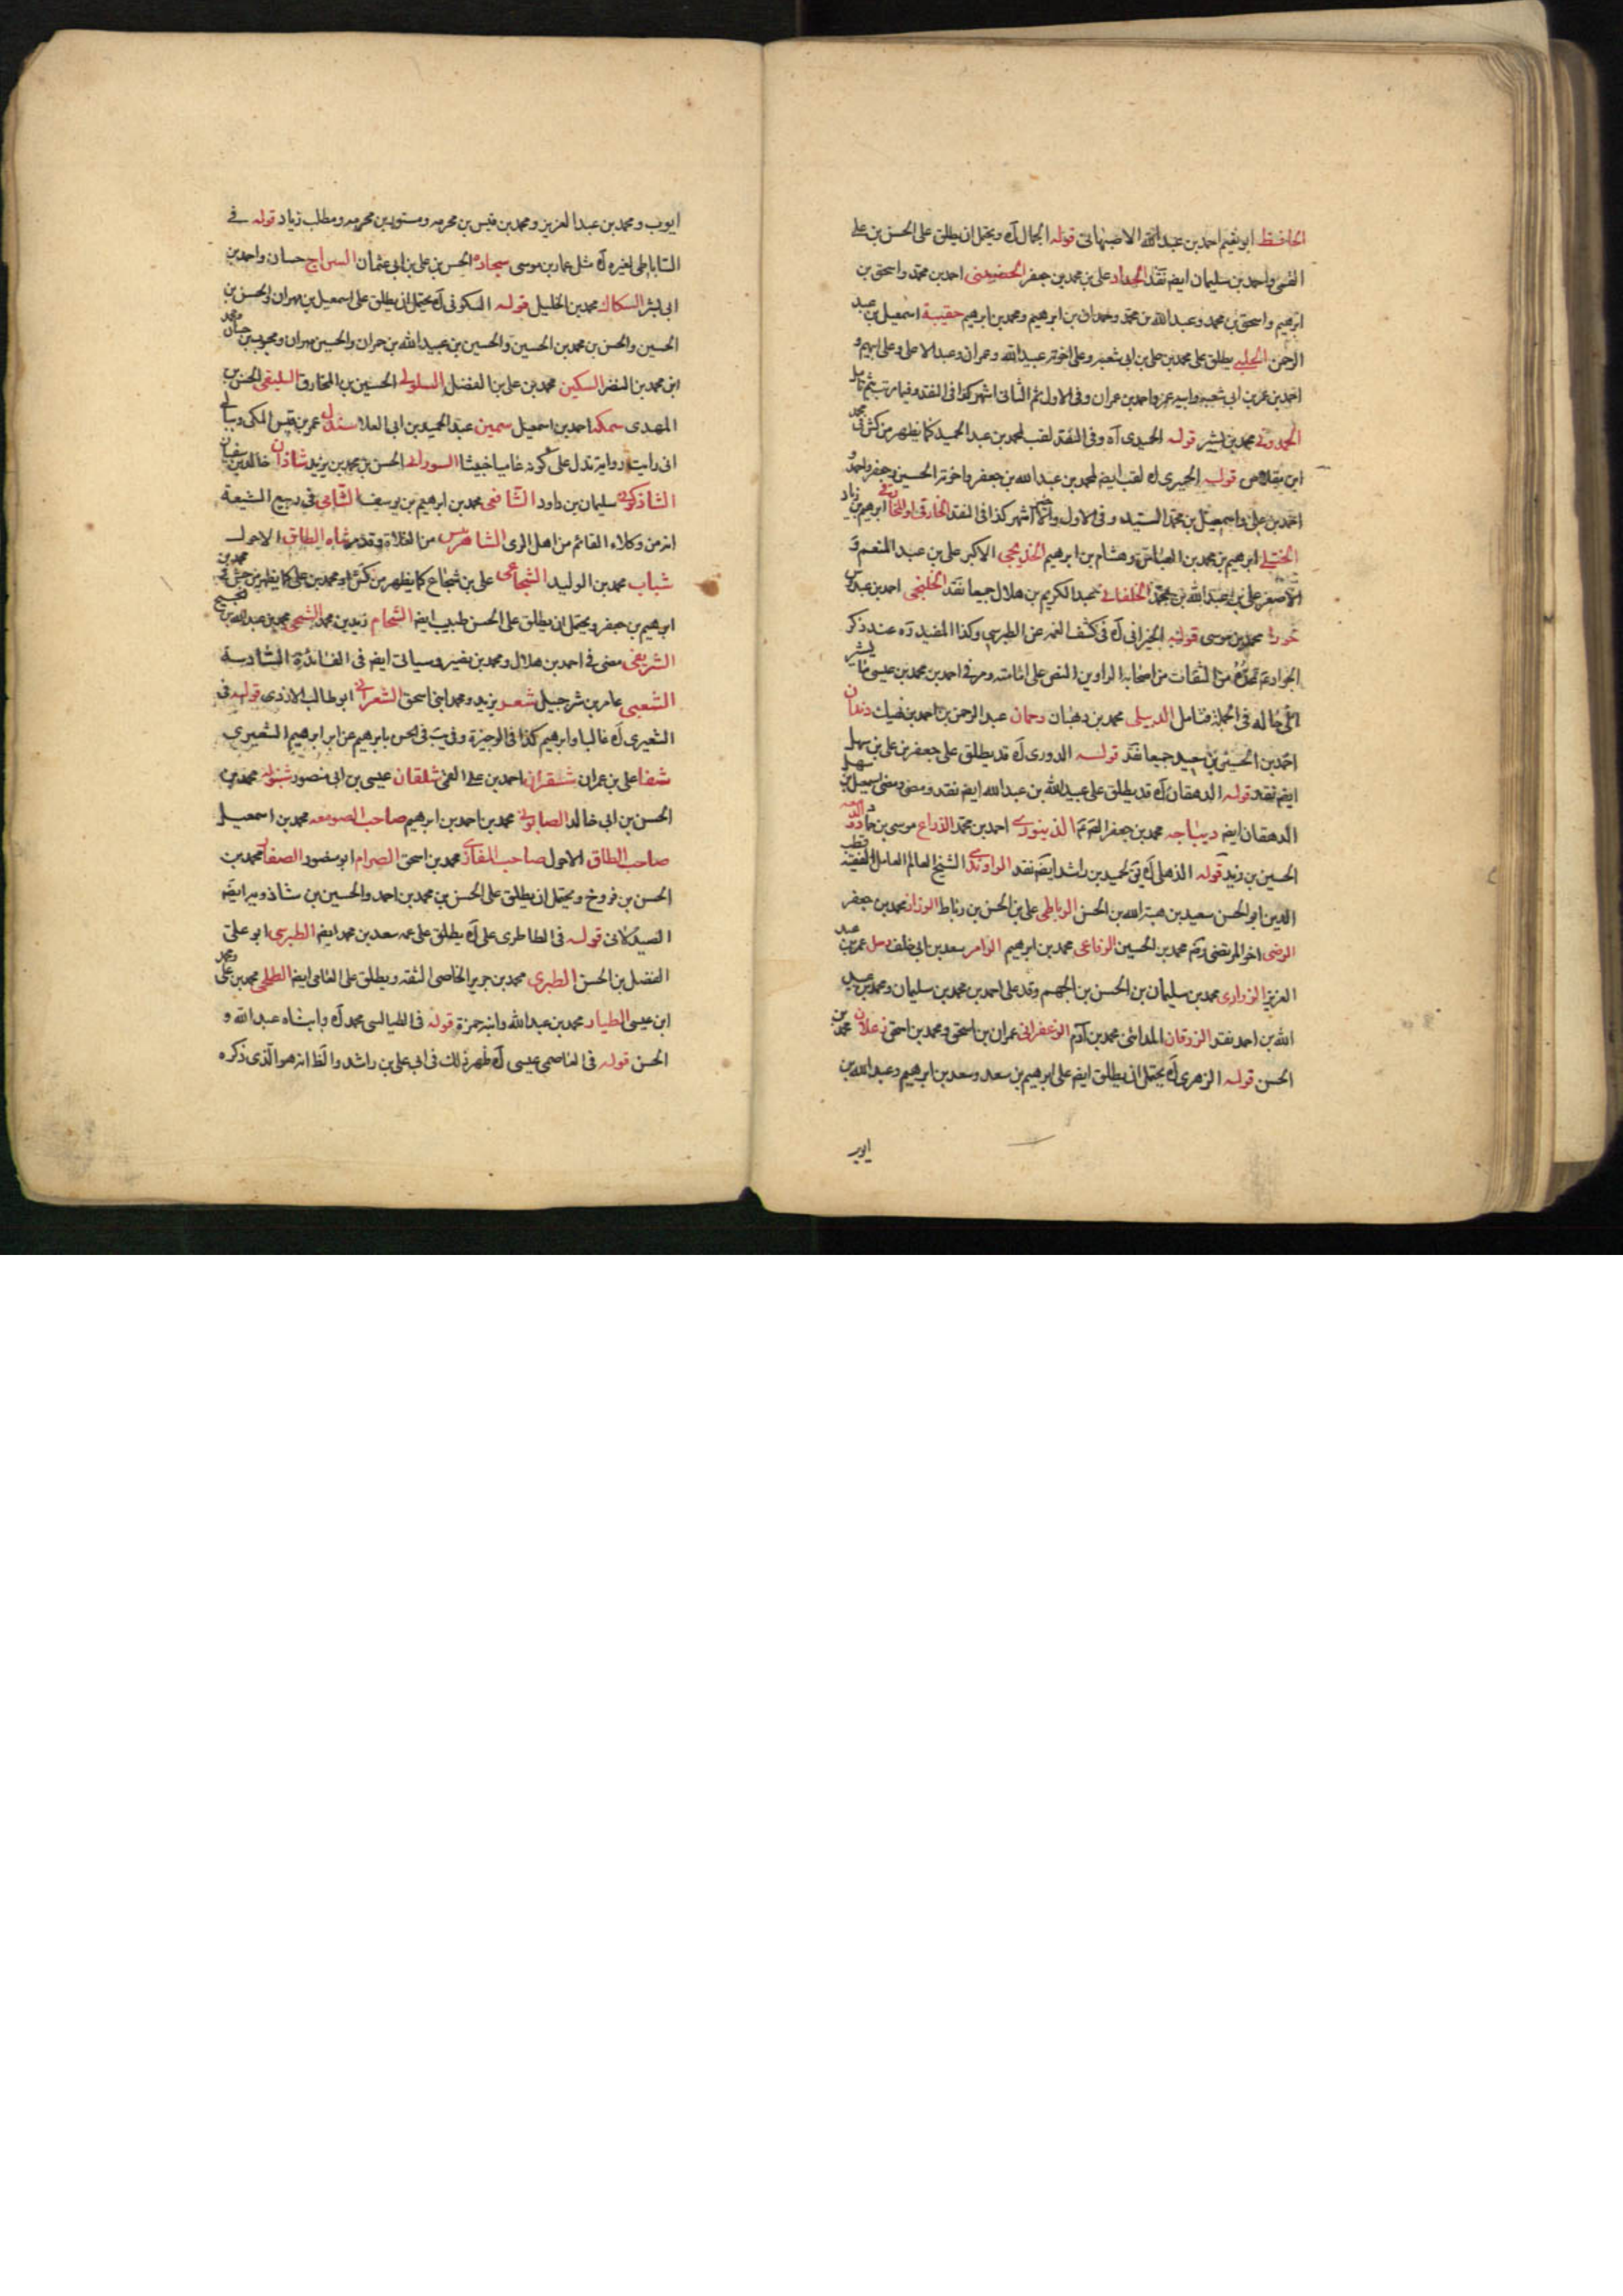 الحافظ ابو نعيم احمد بن عبدالله الاصبهانى قوله الجمال آه ويحتمل ان يطلق على الحسن بن على
القمى واحمد بن سليمان ايضم نقد الحداد على بن محمد بن جعفر الحضينى احمد بن محمد واسحق بن
ابرهيم واسحق بن محمد وعبدالله بن محمد وحمدان بن ابرهيم ومحمد بن ابرهيم حقيبة اسمعيل بن عبد
الرحمن الحلبى يطلق على محمد بن على بن ابى شعبه وعلى اخوته عبيدالله وعمران وعبدالاعلى وعلى ابيهم و
احمد بن عمر بن ابى شعبه وابيه عمر واحمد بن عمران وفى الاول ثم الثانى اشهر كذا فى النقد
محمد بن بشير قوله الحميدى آه وفى النقد لقب لمحمد بن عبد الحميد كما يظهر من كش فى
ابن مقلاص قوله الحميرى آه لقب ايضم لمحمد بن عبدالله بن جعفر واخوته الحسين وجعفر واحمد و
احمد بن على واسمعيل بن محمد السيد وفى الاول اشهر كذا فى النقد ابرهيم بن زياد
ابرهيم بن محمد بن العباس وهشام بن ابرهيم الاكبر على بن عبد المنعم و
الاصغر على بن عبدالله بن محمد عبد الكريم بن هلال جميعا نقد الخلنجى احمد بن عبدوس
محمد بن موسى قوله الخيرانى آه فى كشف الغمه عن الطبرسى وكذا المفيد ره عند ذكر
الجواد من الثقات من اصحابه الراوين النص على امامته ومر فى احمد بن محمد بن عيسى ما يشير
الى حاله فى الجملة فتامل الدبيلى محمد بن وهبان دحمان عبد الرحمن بن احمد بن نهيك دندان
احمد بن الحسين بن سعيد جميعا نقد قوله الدورى آه قد يطلق على جعفر بن على بن سهل
ايضم نقد قوله الدهقان آه قد يطلق على عبيدالله بن عبدالله ايضم نقد ومضى اسمعيل بن سهل
الدهقان ايضم ديباجه محمد بن جعفر الدينورى احمد بن محمد الذراع موسى بن حماد
الحسين بن زيد قوله الذهلى آه لحميد بن راشد ايضم نقد الراوندى الشيخ العالم العامل الفقيه قطب
الدين ابو الحسن سعيد بن هبة الله بن الحسن الرباطى على بن الحسن بن رباط الرزاز محمد بن جعفر
الرضى اخو المرتضى محمد بن الحسين الرفاعى محمد بن ابرهيم سعد بن ابى خلف عمر بن عبد
العزيز الزرارى محمد بن سليمان بن الحسن بن الجهم وقد على احمد بن محمد بن سليمان ومحمد بن عبيد
الله بن احمد نقد الزرقان المدائنى محمد بن آدم الزعفرانى عمران بن اسحق ومحمد بن اسحق زعلان محمد بن
الحسن قوله الزهرى آه يحتمل ان يطلق ايضم على ابرهيم بن سعد وسعد بن ابرهيم وعبدالله بن
ايوب
ايوب ومحمد بن عبد العزيز ومحمد بن قيس بن مخرمه ومسور بن مخرمه ومطلب زياد قوله فى
الساباطى لغيره آه مثل عمار بن موسى سجاده الحسن بن على بن ابى عثمان السراج حسان واحمد بن
ابى بشر السكاك محمد بن الخليل قوله السكونى آه يحتمل ان يطلق على اسمعيل بن مهران والحسن بن
الحسين والحسن بن محمد بن الحسين والحسين بن عبيدالله بن حمران والحسين مهران ومحبوب بن حسان
ابن محمد بن النضر السكين محمد بن على بن الفضل السلولى الحسين بن المخارق السليقى الحسن بن
المهدى سمكه احمد بن اسمعيل سمين عبد الحميد بن ابى العلا سندل عمر بن قيس المكى وببالى
انى رايت رواية تدل على كونه عاميا خبيثا السورائى الحسن بن محمد بن يزيد شاذان خالد بن سفيان
الشاذكونى سليمان بن داود الشافعى محمد بن ابرهيم بن يوسف الشامى فى ربيع الشيعة
انه من وكلاء القائم من اهل الرى من الغلاة وقد مر شاه الطاق الاحول
شباب محمد بن الوليد الشجاعى على بن شجاع كما يظهر من كش او محمد بن على كما يظهر من
ابرهيم بن جعفر ويحتمل ان يطلق على الحسن طبيب ايضم الشحام زيد بن محمد محمد بن عبدالله بن نجيح
الشريفى مضى فى احمد بن هلال ومحمد بن نصير وسياتى ايضم فى الفائدة السادسة
الشعبى عامر بن شرجيل شعر يزيد ومحمد ابنى اسحق الشعرانى ابو طالب الازدى قوله فى
الشعيرى آه غالبا وابرهيم كذا فى الوجيزة وفى يب فى الحسن بابرهيم عن ابرهيم الشعيرى
شفا على بن عمران شنقران احمد بن على القمى شلقان عيسى بن ابى منصور شنبوله محمد بن
الحسن بن ابى خالد الصابونى محمد بن احمد بن ابرهيم صاحب الصومعه محمد بن اسمعيل
صاحب الطاق الاحول صاحب المغازى محمد بن اسحق الصرام ابو منصور الصفار محمد بن
الحسن بن فروخ ويحتمل ان يطلق على الحسن بن محمد بن احمد والحسين بن شاذويه ايضم
الصيدلانى قوله فى الطاطرى على آه يطلق على عمه سعد بن محمد ايضم الطبرسى ابو على
الفضل بن الحسن الطبرى محمد بن جرير الخاصى الثقه ويطلق على العامى ايضم الطلحى محمد بن على ومحمد
ابن عيسى الطيار محمد بن عبدالله وابنه حمزة قوله فى الطيالسى محمد آه وابناه عبدالله و
الحسن قوله فى العاصمى عيسى آه ظهر ذلك فى ابى على بن راشد والظ انه هو الذى ذكره